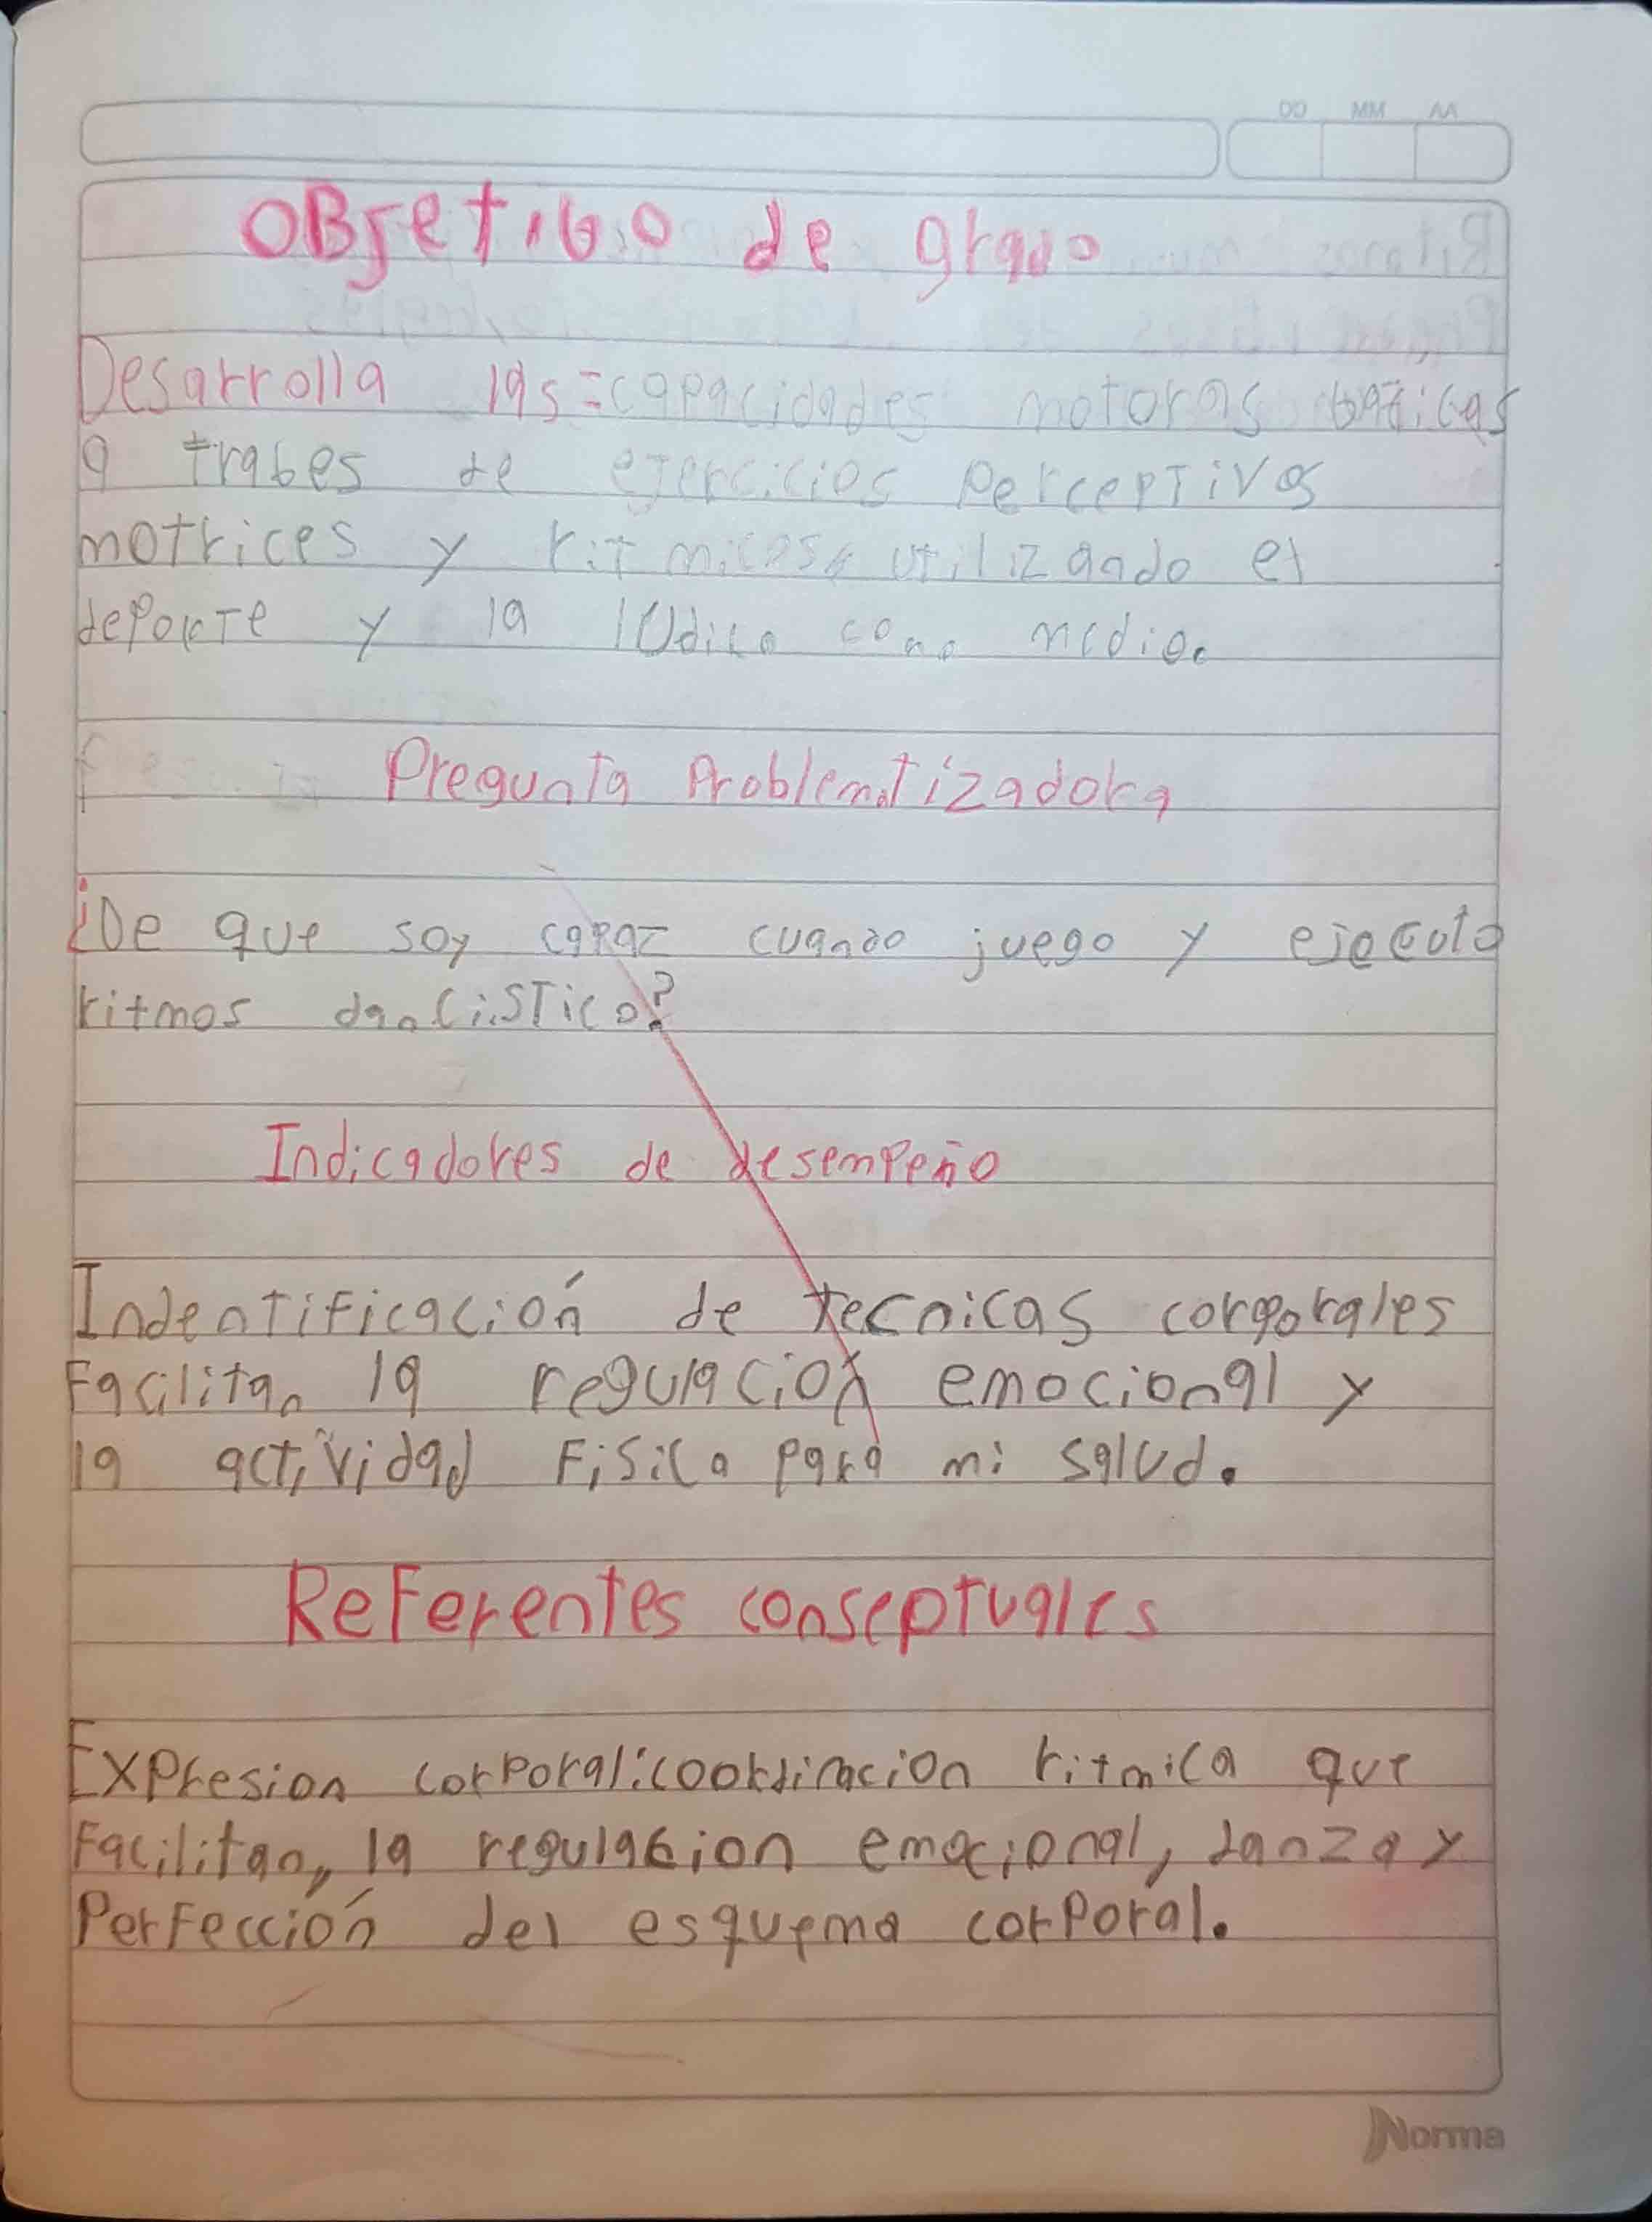 DD MM AA
OBJetibo de grado
Desarrolla las=capacidades motoras basicas
a trabes de ejercicios PercepTivos
motrices y ritmicos utilizando el
deporTe y la lUdica como medio.
Pregunta Problematizadora
¿De que soy capaz cuando juego y ejecuto
ritmos danCisTico?
Indicadores de desempeño
IndentiFicación de tecnicas corporales
Facilitan la regulación emocional y
la actividad Fisica para mi salud.
ReFerentes conseptuales
EXPresion corporal:coordinacion ritmica que
Facilitan, la regulacion emocional, danza y
PerFección del esquema corporal.
Norma